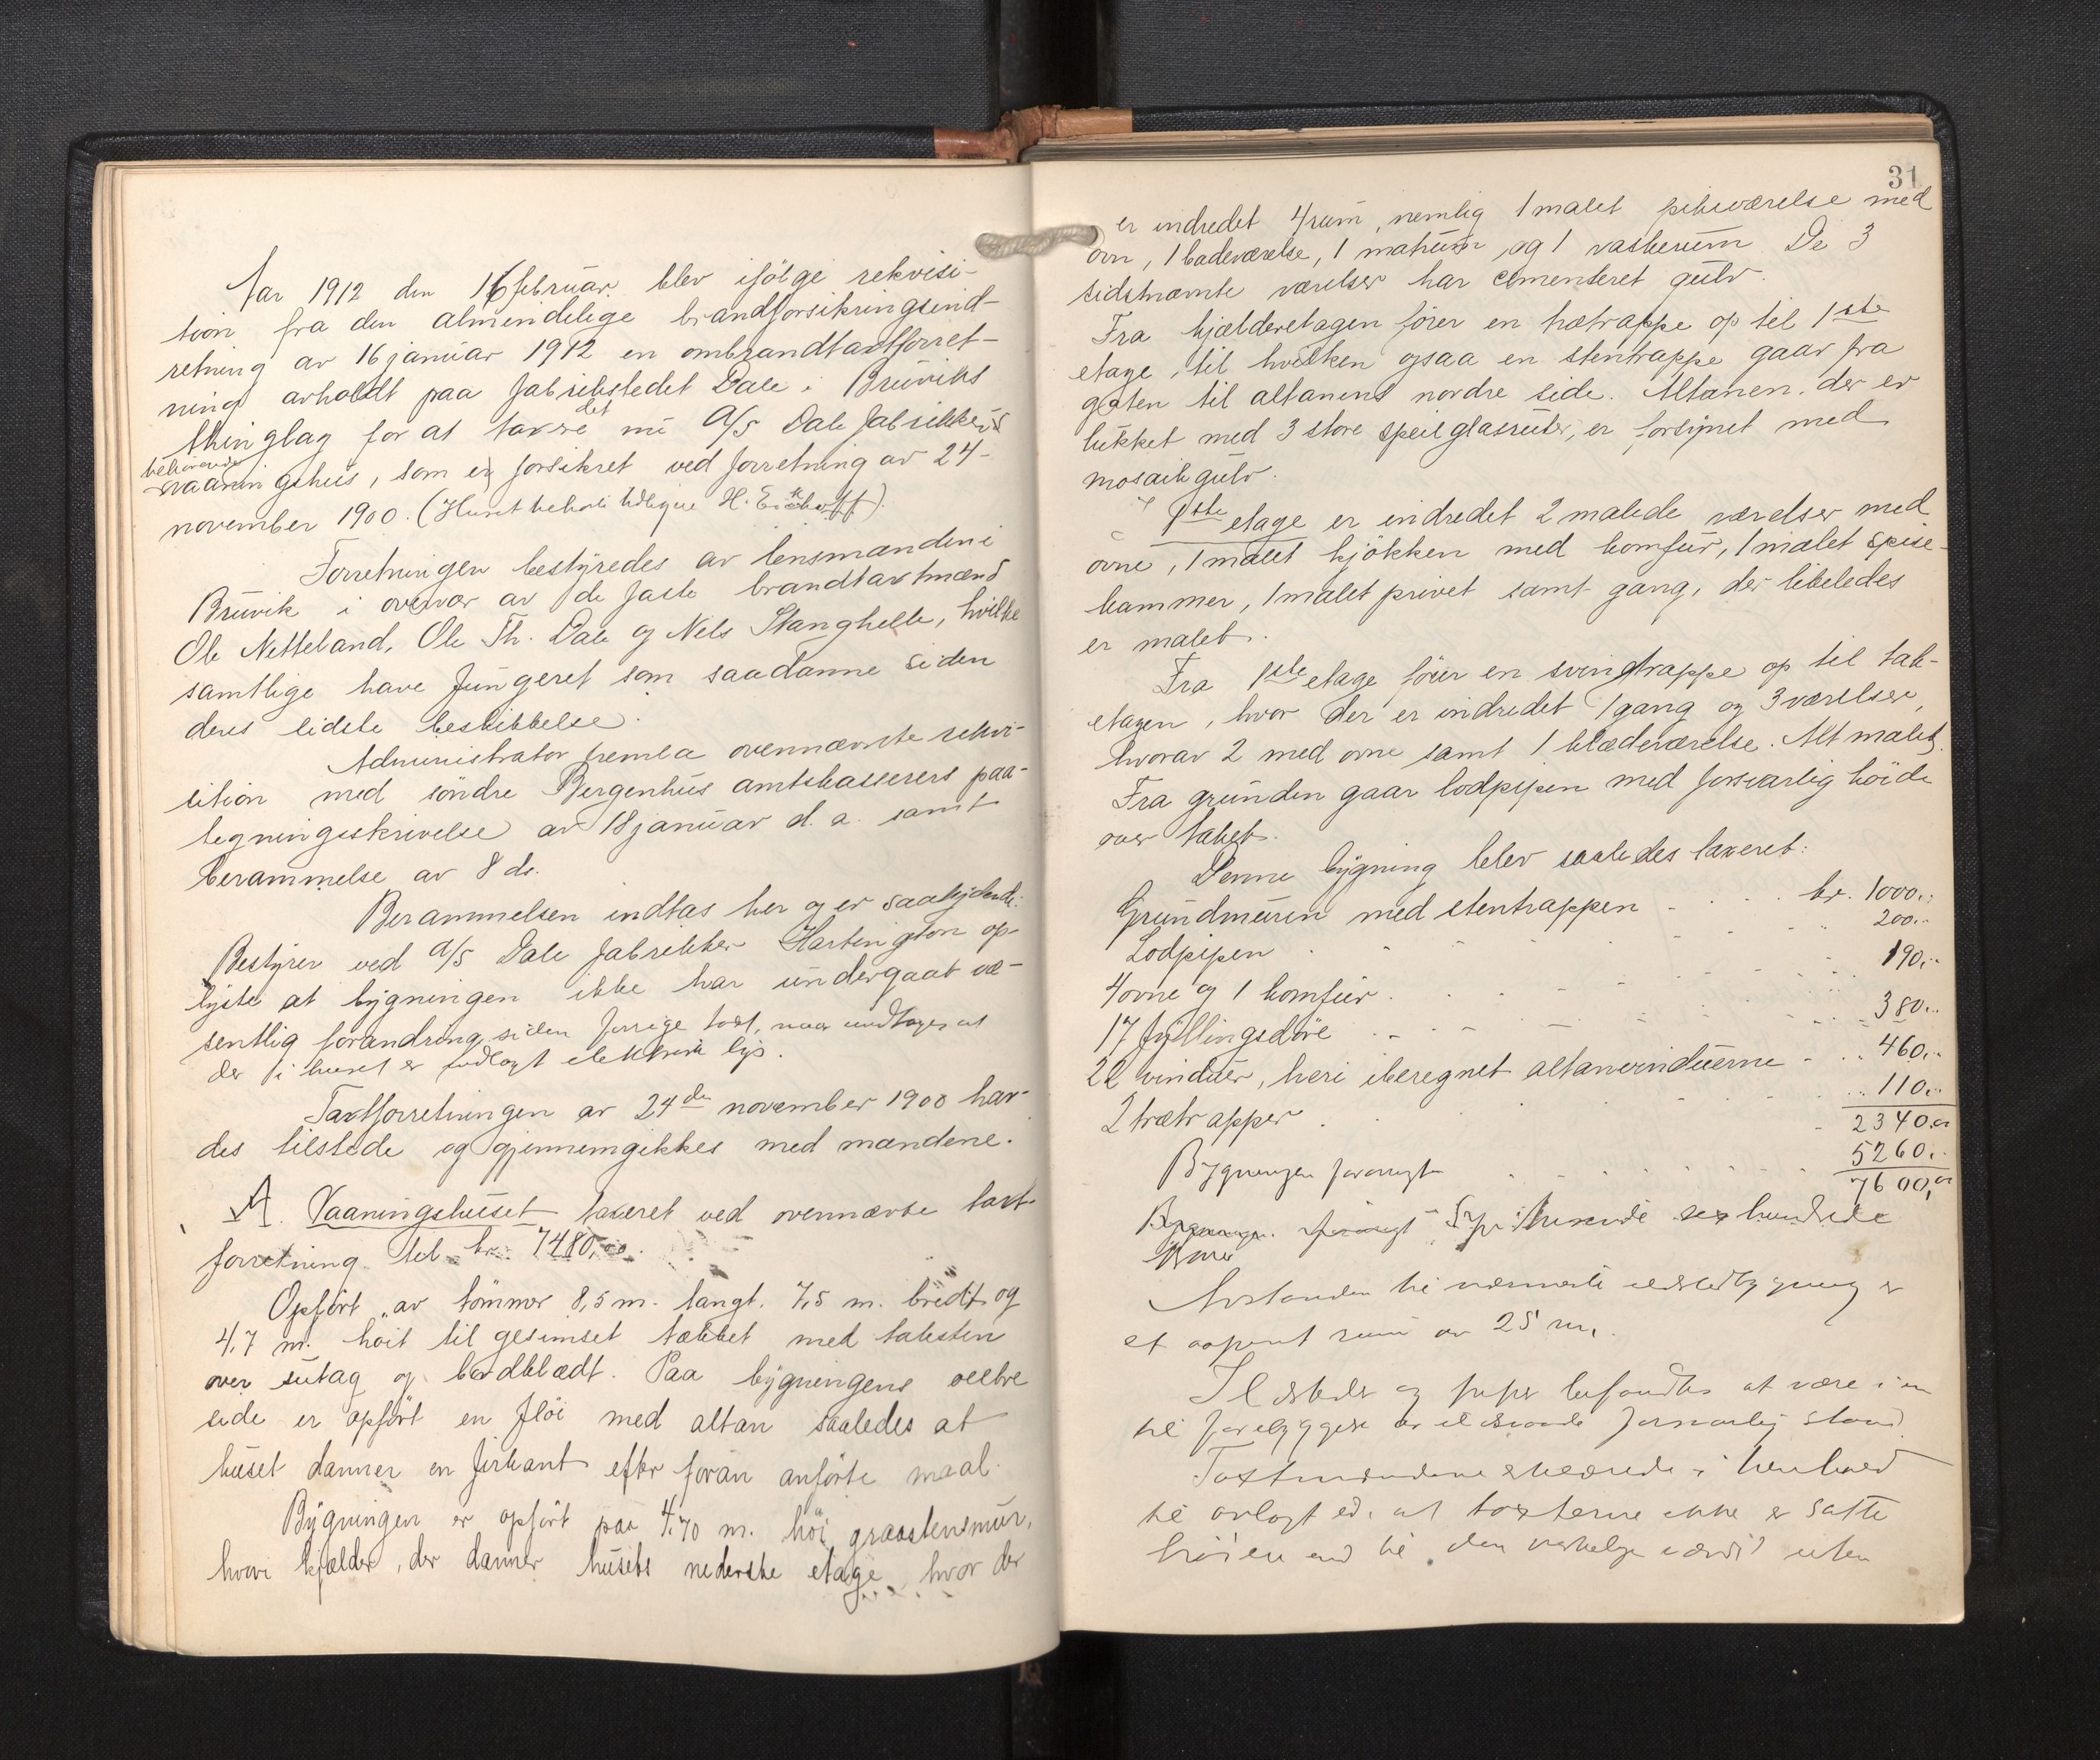 Aar 1912 den 16 februar blev ifölge rekvisi-
tion fra den almindelige brandforsikringsind-
retning av 16 januar 1912 en ombrandtaxtforret-
ning avholdt paa fabrikstedet Dale i Bruviks
thinglag for at taxere det nu A/S Dale fabrikker
tilhörende
vaaningshus, som er forsikret ved forretning av 24-
november 1900. (Huset tidligere H.
Forretningen bestyredes av lensmanden i
Bruvik i overvær av de faste brandtaxtmænd
Ole Netteland, Ole Th. Dale og Nels Stanghelle, hvilke
samtlige have fungeret som saadanne siden
deres sidste beskikkelse.
Administrator fremla ovennævnte rekvi-
sition med söndre Bergenhus amtskasserers paa-
tegningsskrivelse av 18 januar d. a. samt
berammelse av 8 ds.
Berammelsen indtas her og er saalydende:
Bestyrer ved A/S Dale fabrikker Hartington op-
lyste at bygningen ikke har undergaat væ-
sentlig forandring siden forrige taxt, naar undtages at
der i huset er indlagt elektrisk lys.
Taxtforretningen av 24de november 1900 hav-
des tilstede og gjennemgikkes med mændene.
A. Vaaningshuset taxeret ved ovennævnte taxt-
forretning til kr. 7480,00.
Opfört av tömmer 8,5 m. langt. 7,5 m. bredt og
4,7 m. höit til gesimset tækket med taksten
over sutag og bordklædt. Paa bygningens vestre
side er opfört en flöi med altan saaledes at
huset danner en firkant efter foran anförte maal.
Bygningen er opfört paa 4,70 m. höi graastensmur,
hvori kjælder, der danner husets nederste etage hvor der
31
er indredet 4 rum, nemlig 1 malet pikeværelse med
ovn, 1 badeværelse, 1 matrum og 1 vaskerum De 3
sidstnævnte værelser har cementeret gulv.
Fra kjælderetagen förer en trætrappe op til 1ste
etage, til hvilken ogsaa en stentrappe gaar fra
gaten til altanens nordre side. Altanen, der er
lukket med 3 store speilglasruter, er forsynet med
mosaikgulv.
I 1ste etage er indredet 2 malede værelser med
ovne, 1 malet kjökken med komfur, 1 malet spise-
kammer, 1 malet privet samt gang, der likeledes
er malet.
Fra 1ste etage förer en svingtrappe op til tak-
etagen, hvor der er indredet 1 gang og 3 værelser,
hvorav 2 med ovne samt 1 klædeværelse. Alt malet.
Fra grunden gaar lodpipen med forsvarlig höide
over taket.
Denne bygning blev saaledes taxeret:
Grundmuren med stentrappen - . . . kr. 1000,-
Lodpipen . . . . 200,-
4 ovne og 1 komfur . . . . 190,-
17 fyllingsdöre . . . . 380,-
22 vinduer, heri iberegnet altanvinduerne - . . 460,-
2 trætrapper . . . . 110,-
2340,00
Bygningen forövrigt . . . . 5260,-
7600,00
Syv tusinde sex hundrede
Kroner
Avstanden til nærmeste bygning er
et aapent rum av 25 m.
Ildsteder og piper befandtes at være i en
til forebyggelse av ildsvaade forsvarlig stand.
Taxtmændene erklærede i henhold
til avlagt ed, at taxterne ikke er satte
höiere end til den virkelige værdi uten